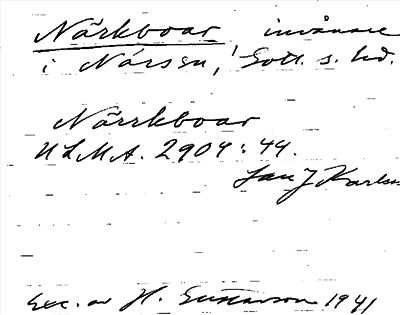 Närkboar invånare
i Närsen, Gotl. s. hd.
Närrkboar
ULMA. 2904:44.
Jan J Karlss
Exc. av H. Gustavson 1941